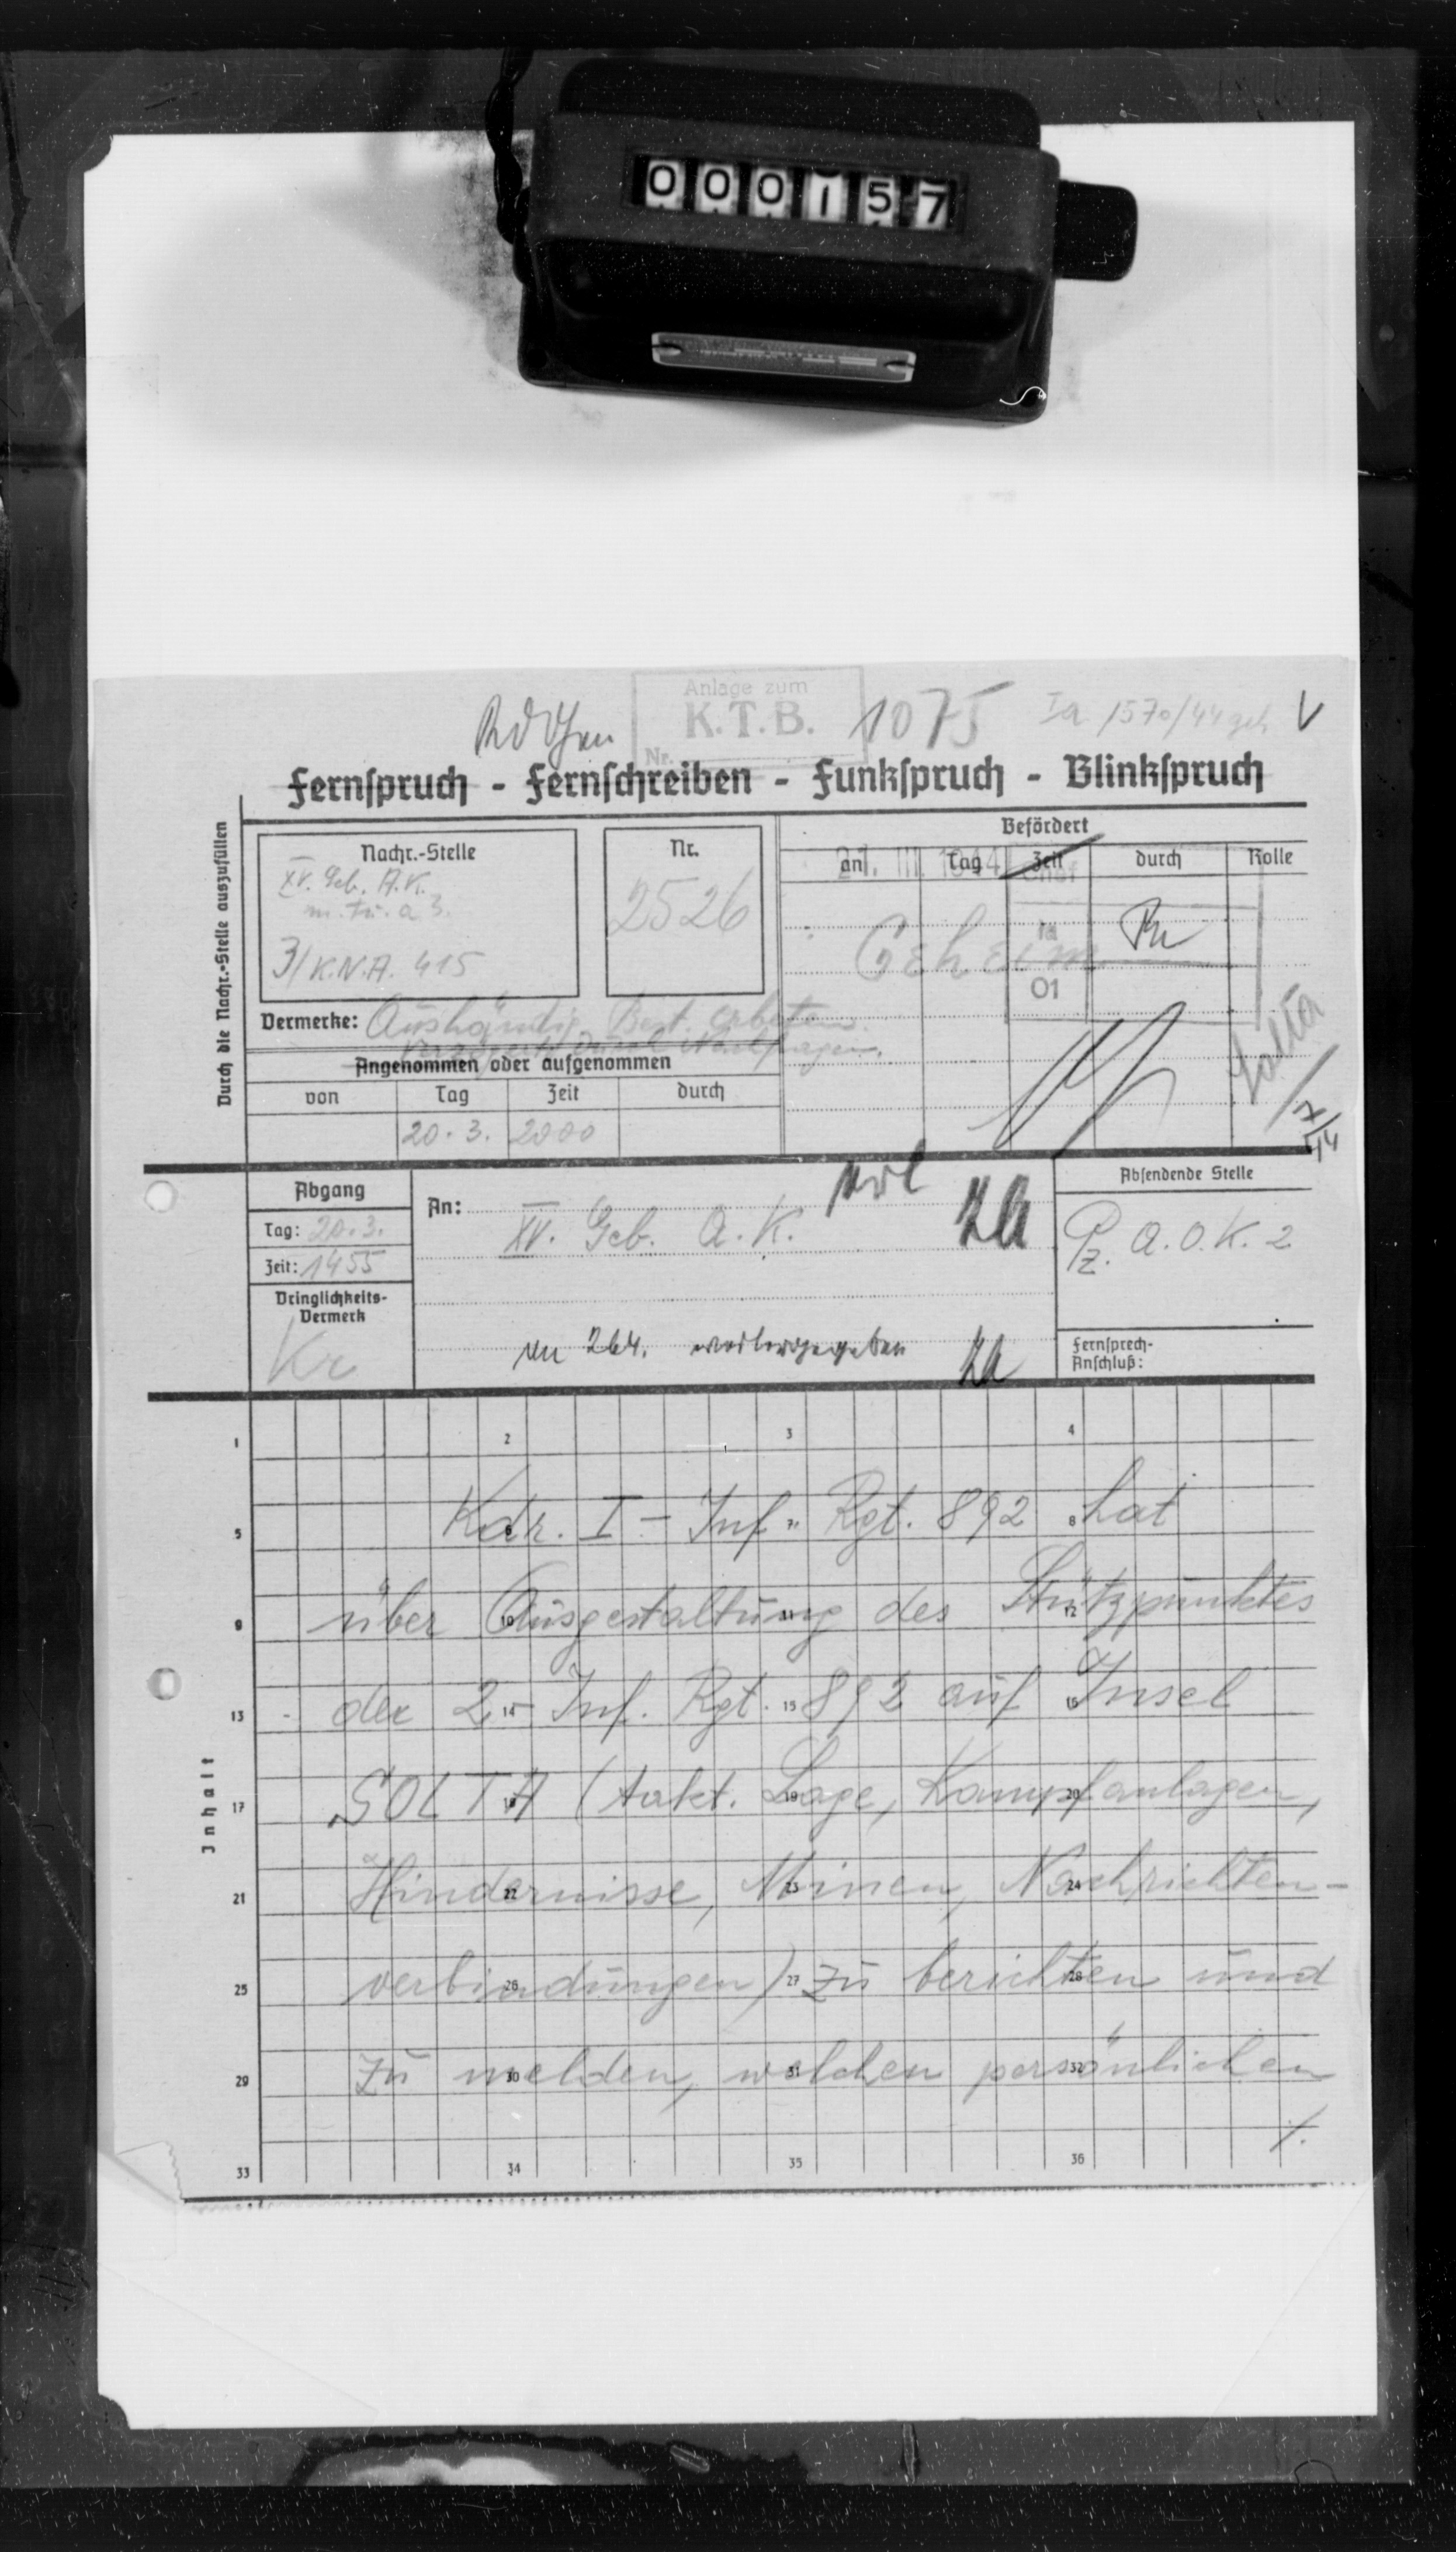 000157
Anlage zum
K.T.B.
Nr.
1075
Ia 1570/44 geh
Fernspruch - Fernschreiben - Funkspruch - Blinkspruch
Durch die Nachr.-Stelle auszufüllen
Nachr.-Stelle
XV. Geb. A.K.
3/K.N.A. 415
Nr.
2526
Befördert
an
Tag
Zeit
durch
Rolle
21. III. 1944
Chef
Ia
01
Geheim
Vermerke: Aushändig. Best. erbeten.
Angenommen oder aufgenommen
von
Tag
Zeit
durch
20.3.
2000
Solta
Abgang
Tag: 20.3.
Zeit: 1455
Dringlichkeits-
Vermerk
Kr
An:
XV. Geb. A.K.
264. weitergegeben
Absendende Stelle
Pz. A.O.K. 2
Fernsprech-
Anschluß:
Inhalt
1 2 3 4
Kdr. I - Inf. Rgt. 892 hat
5 8
über Ausgestaltung des Stützpunktes
9 10 11 12
der 2.- Inf. Rgt. 892 auf Insel
13 14 15 16
SOLTA (takt. Lage, Kampfanlagen,
17 18 19 20
Hindernisse, Minen, Nachrichten-
21 22 23 24
verbindungen) zu berichten und
25 26 27 28
zu melden, welchen persönlichen
29 30 31 32
./.
33 34 35 36